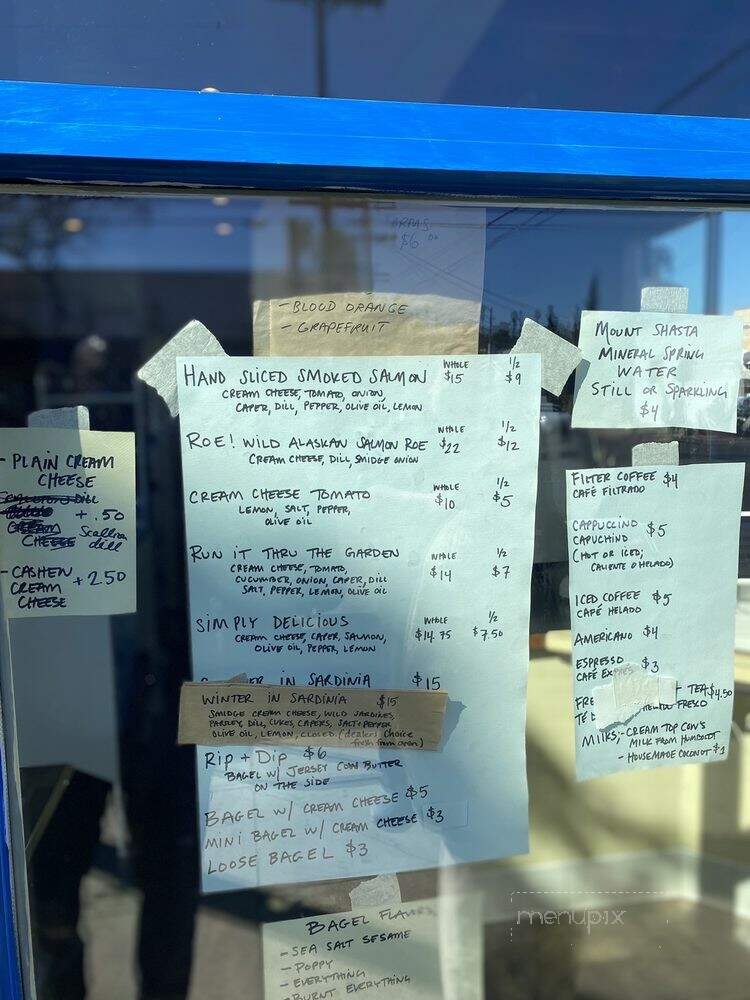 $6
- BLOOD ORANGE
- GRAPEFRUIT
HAND SLICED SMOKED SALMON WHOLE $15 1/2 $9
CREAM CHEESE, TOMATO, ONION,
CAPER, DILL, PEPPER, OLIVE OIL, LEMON
ROE! WILD ALASKAN SALMON ROE WHOLE $22 1/2 $12
CREAM CHEESE, DILL, SMIDGE ONION
CREAM CHEESE TOMATO WHOLE $10 1/2 $5
LEMON, SALT, PEPPER,
OLIVE OIL
RUN IT THRU THE GARDEN WHOLE $14 1/2 $7
CREAM CHEESE, TOMATO,
CUCUMBER, ONION, CAPER, DILL
SALT, PEPPER, LEMON, OLIVE OIL
SIMPLY DELICIOUS WHOLE $14.75 1/2 $7.50
CREAM CHEESE, CAPER, SALMON,
OLIVE OIL, PEPPER, LEMON
IN SARDINIA $15
WINTER IN SARDINIA $15
SMIDGE CREAM CHEESE, WILD SARDINES,
PARSLEY, DILL, CUKES, CAPERS, SALT + PEPPER
OLIVE OIL, LEMON, CLOSED (dealers choice
fresh from oven)
RIP + DIP $6
BAGEL W/ JERSEY COW BUTTER
ON THE SIDE
BAGEL W/ CREAM CHEESE $5
MINI BAGEL W/ CREAM CHEESE $3
LOOSE BAGEL $3
- PLAIN CREAM
CHEESE
DILL
+ .50
CREAM
CHEESE Scallion
dill
- CASHEW
CREAM + 2.50
CHEESE
MOUNT SHASTA
MINERAL SPRING
WATER
STILL OR SPARKLING
$4
FILTER COFFEE $4
CAFÉ FILTRADO
CAPPUCCINO $5
CAPUCHINO
(HOT OR ICED;
CALIENTE O HELADO)
ICED COFFEE $5
CAFÉ HELADO
AMERICANO $4
ESPRESSO $3
CAFÉ
TEA $4.50
TÉ FRESCO
MILKS; - CREAM TOP COWS
MILK FROM HUMBOLDT
- HOUSEMADE COCONUT $1
BAGEL
- SEA SALT SESAME
- POPPY
- EVERYTHING
- BURNT EVERYTHING
menupix